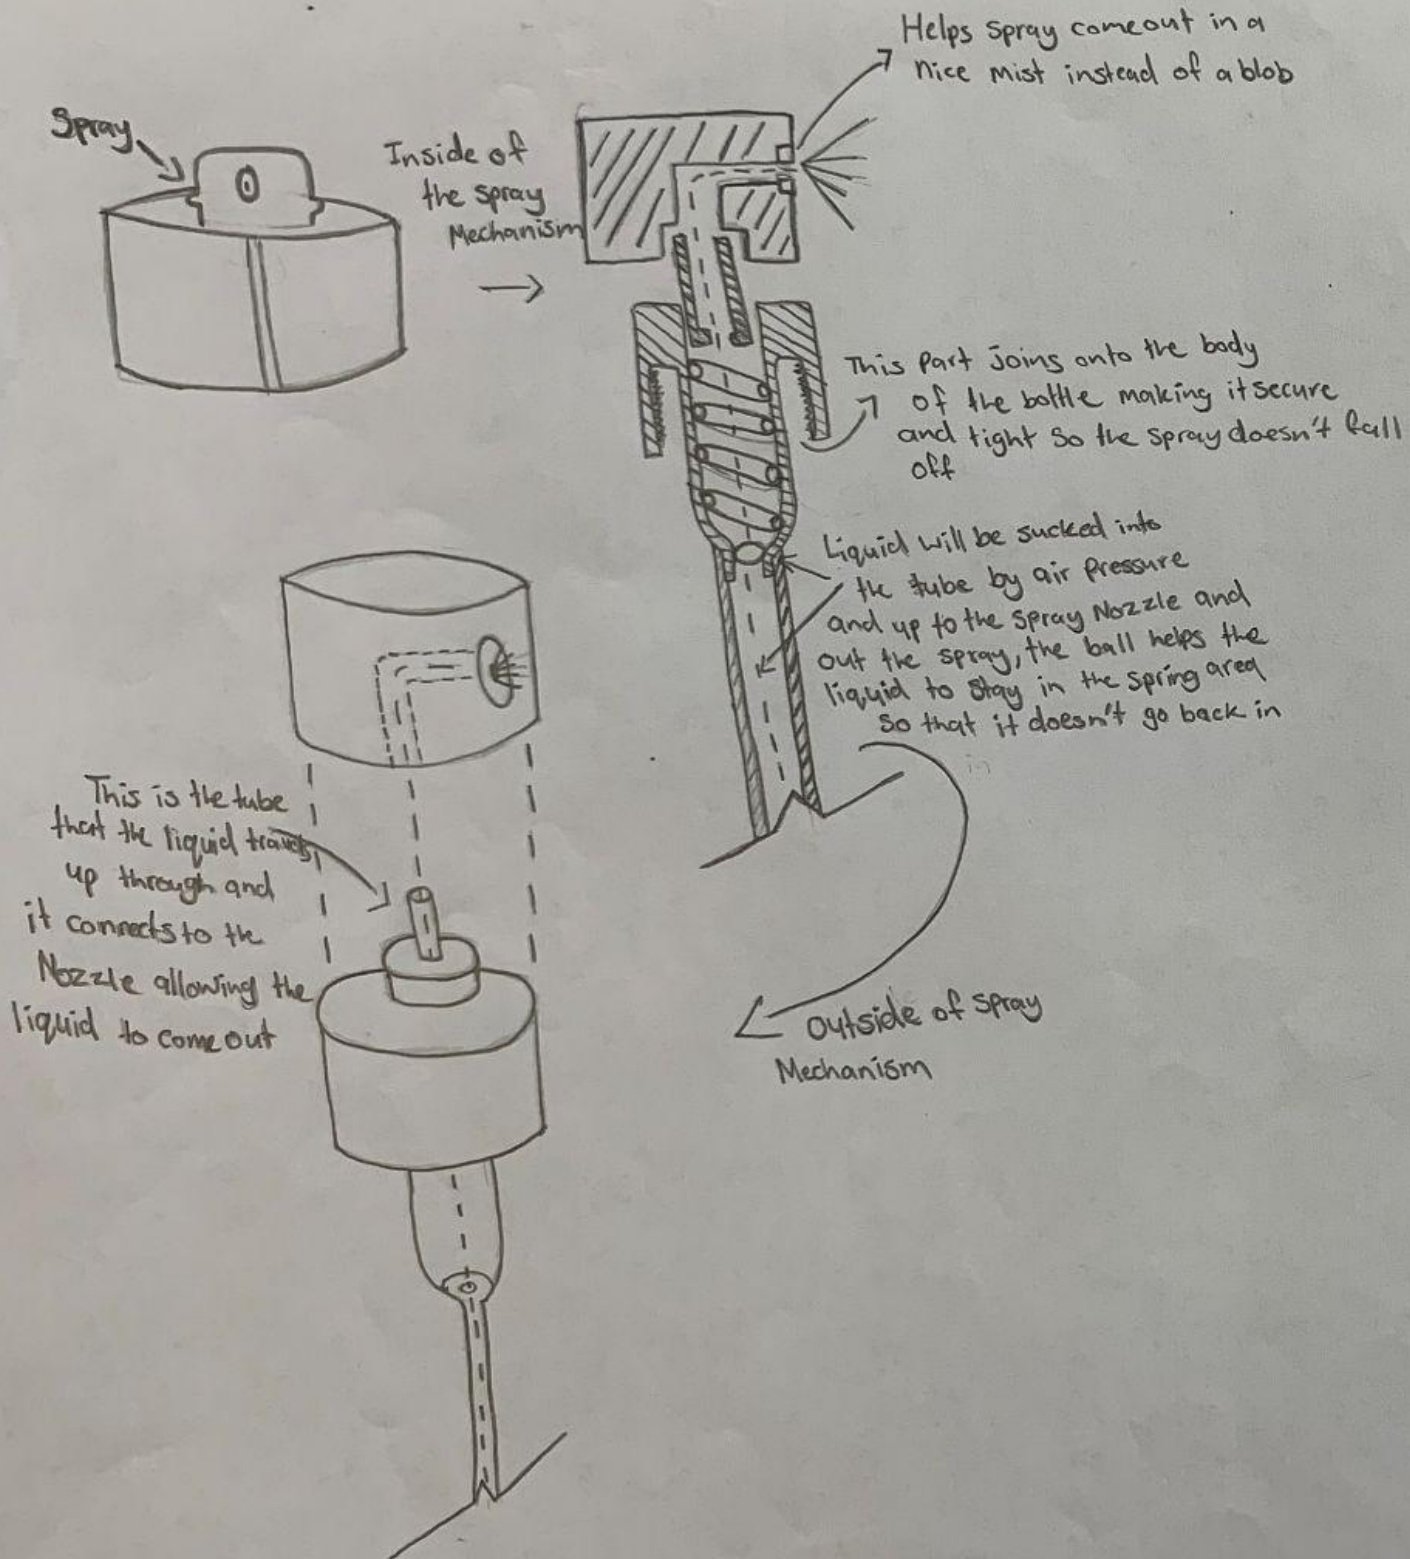 Helps spray comeout in a
nice mist instead of a blob
Spray
Inside of
the spray
Mechanism
This part joins onto the body
of the bottle making it secure
and tight so the spray doesn't fall
off
Liquid will be sucked into
the tube by air pressure
and up to the spray Nozzle and
out the spray, the ball helps the
liquid to stay in the spring area
so that it doesn't go back in
in
This is the tube
that the liquid travels
up through and
it connects to the
Nozzle allowing the
liquid to come out
outside of spray
Mechanism